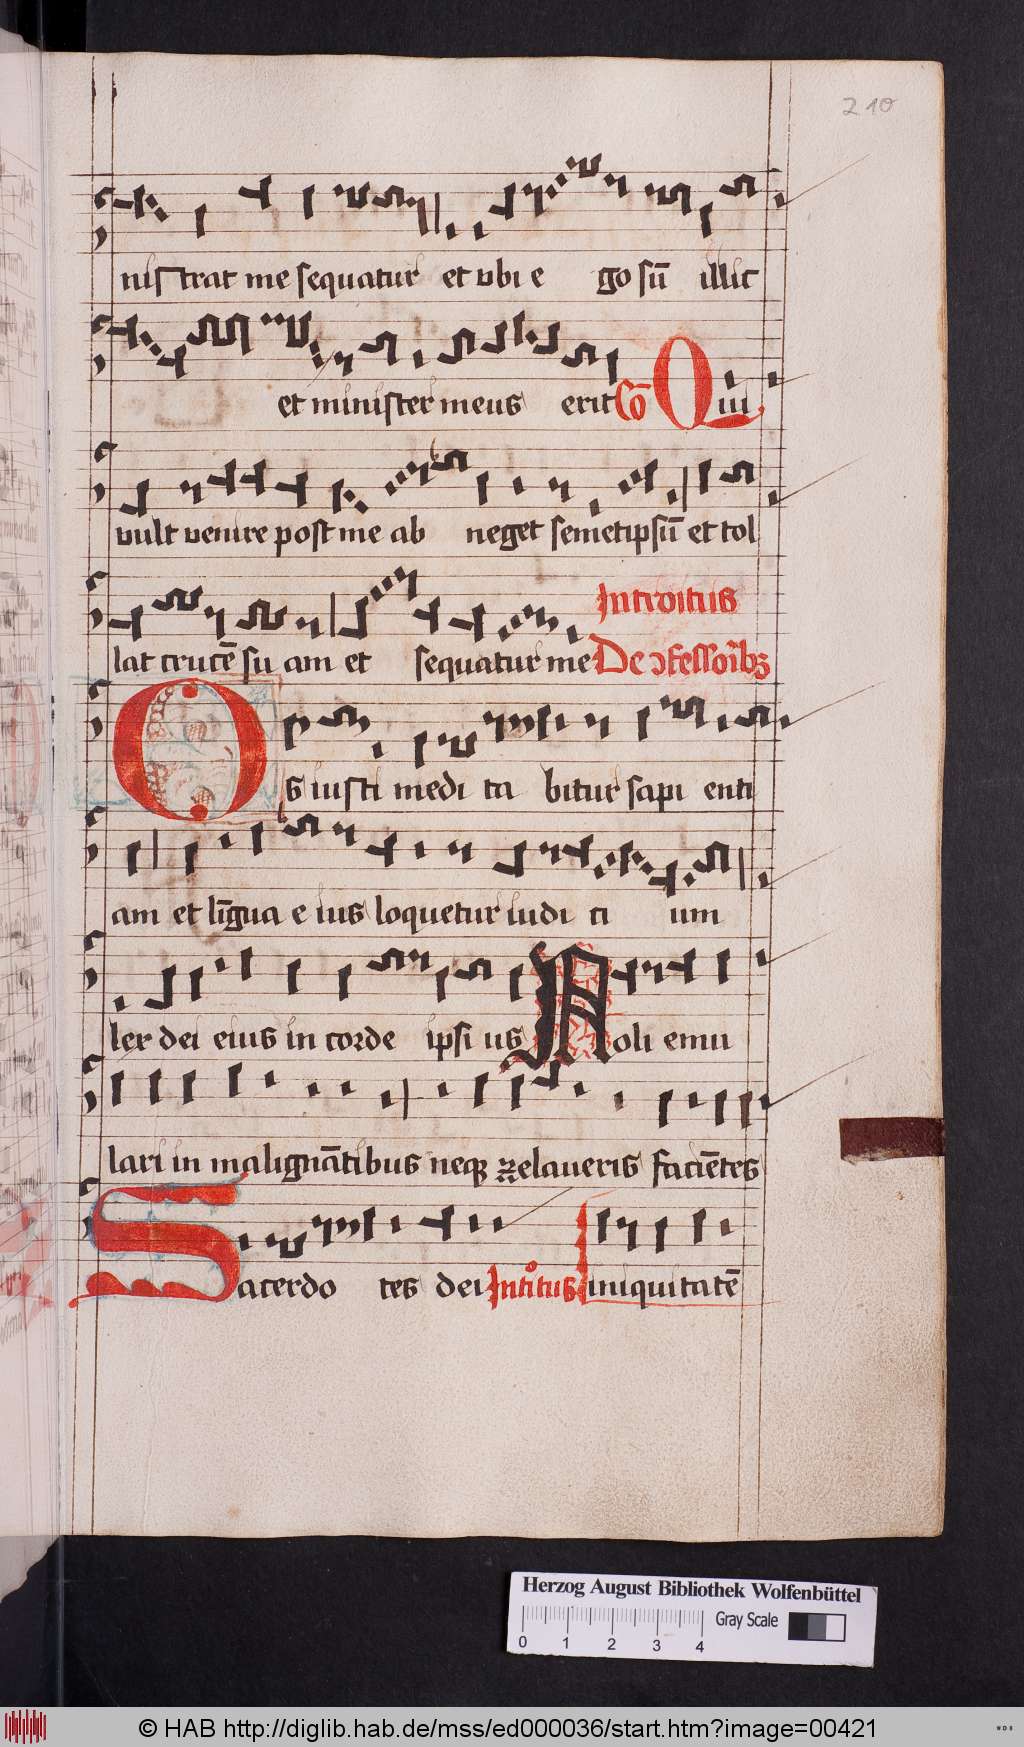 210
nistrat me sequatur et vbi e go sū illic
et minister meus erit Cō Qui
vult venire post me ab neget semetipsū et tol
lat crucē su am et sequatur me Introitus
De ↄfessoribꝫ
Os iusti medi ta bitur sapi enti
am et līgua e ius loquetur iudi ci um
lex dei eius in corde ipsi us Noli emu
lari in malignātibus neqꝫ zelaueris faciētes
Sacerdo tes dei Introitus iniquitatē
Herzog August Bibliothek Wolfenbüttel
0 1 2 3 4 Gray Scale
© HAB http://diglib.hab.de/mss/ed000036/start.htm?image=00421